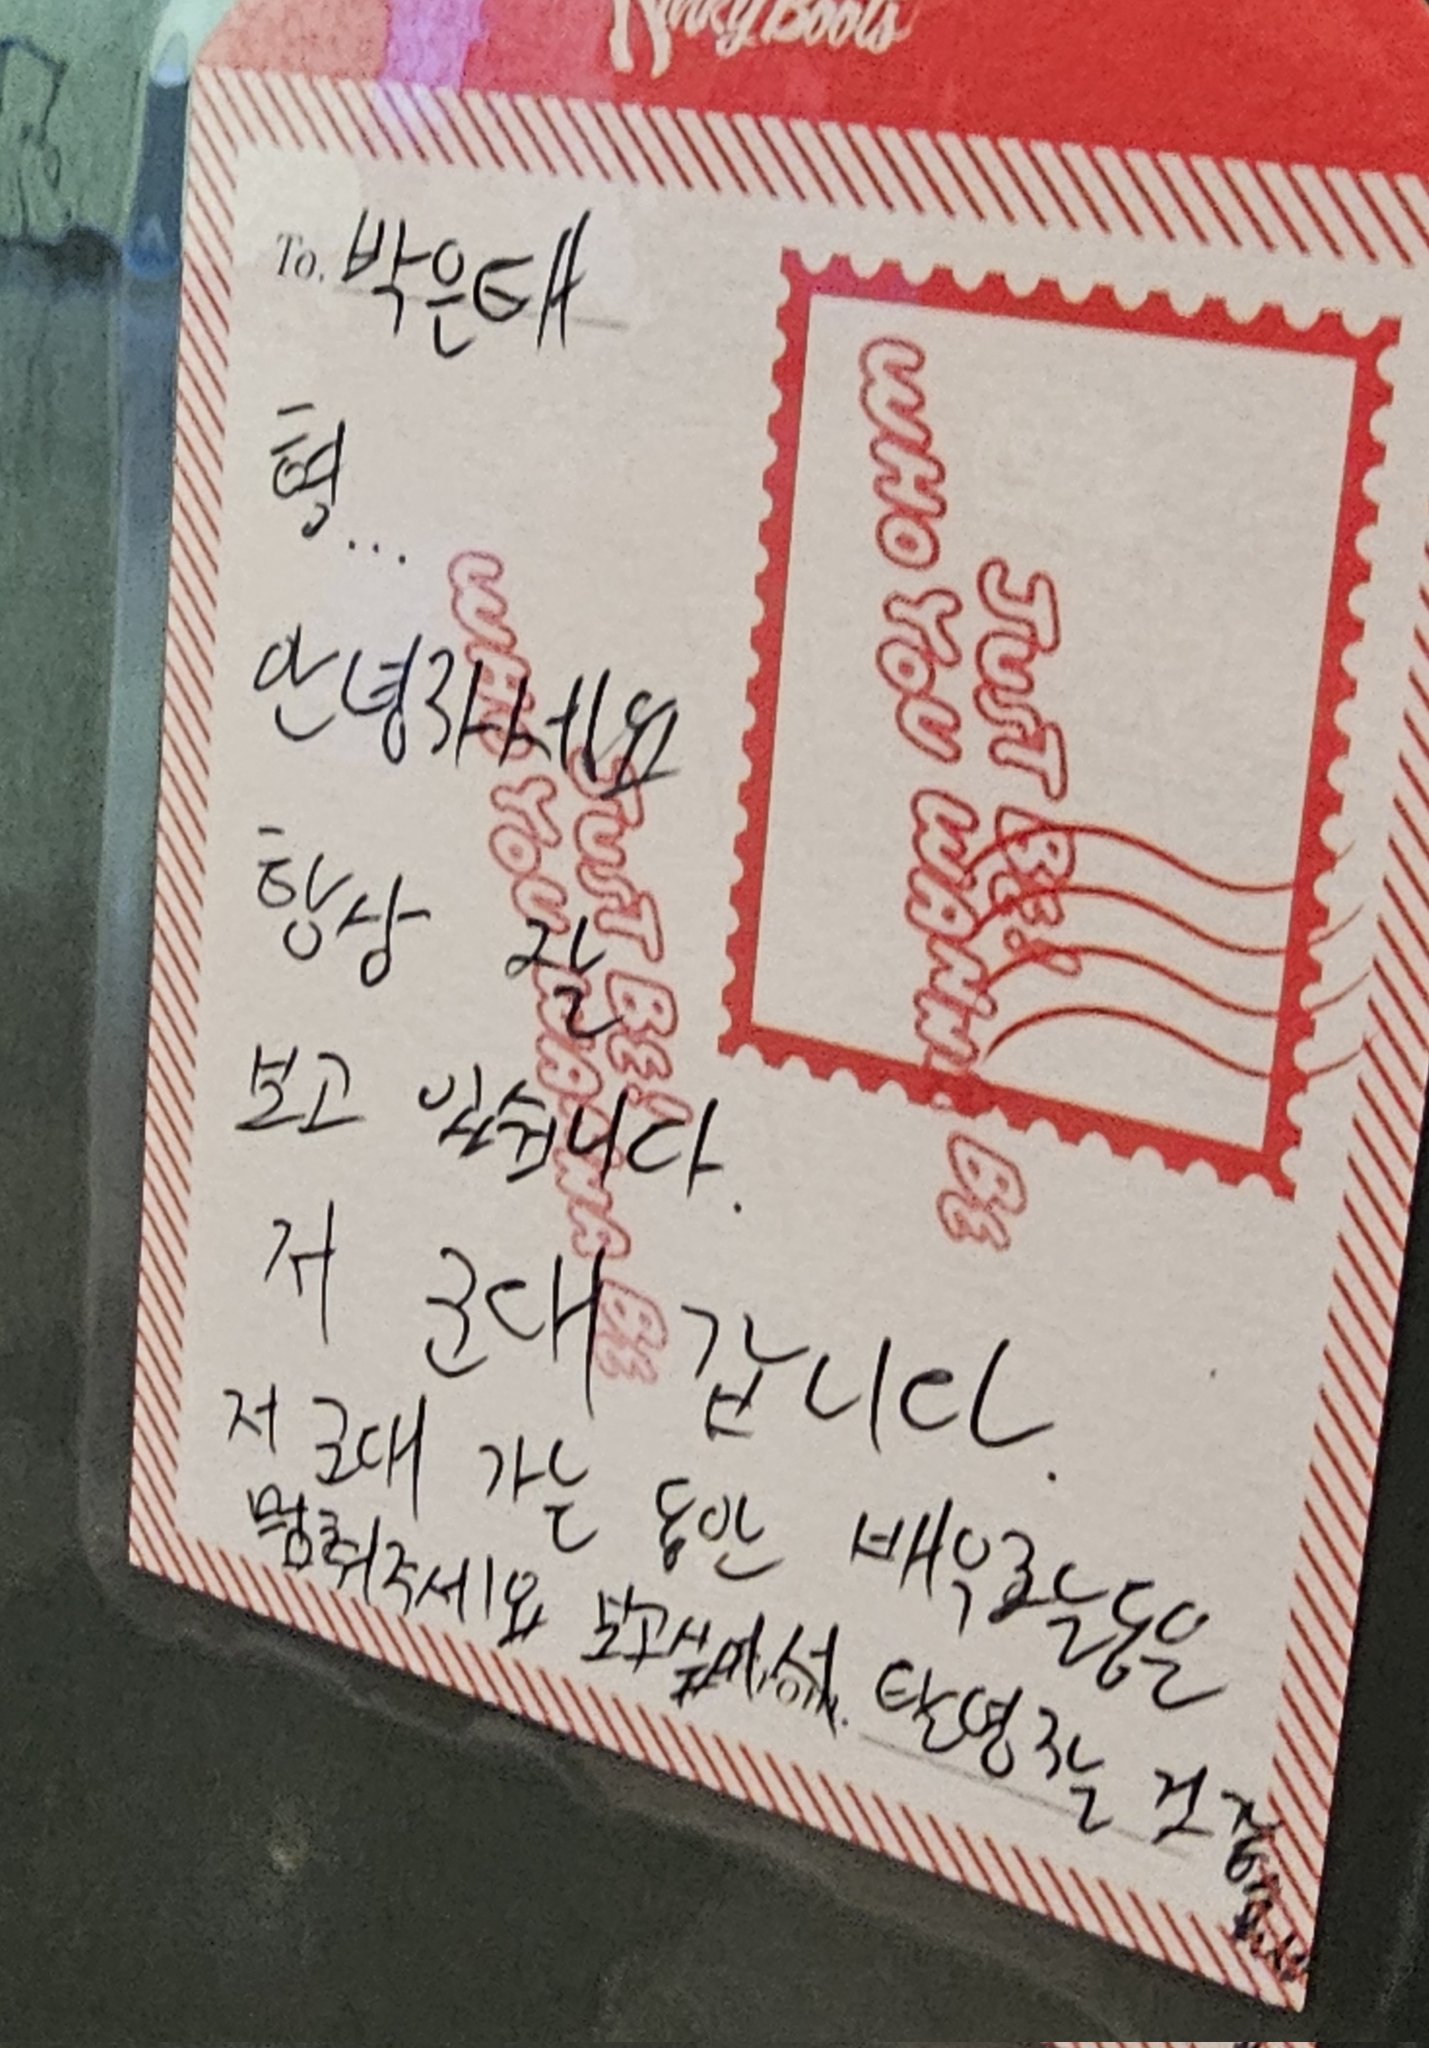 Kinky Boots
To. 박은태
형...
안녕하세요
항상 잘
보고 있습니다.
저 군대 갑니다.
저 군대 가는 동안 배우로늙은
멈춰주세요 보고싶어서.
WHO YOU WANNA BE
JUST BE!
WHO YOU WANNA BE
JUST BE!